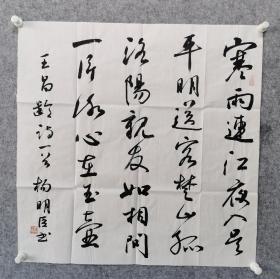 寒雨連江夜入吴
平明送客楚山孤
洛陽親友如相問
一片冰心在玉壶
王昌齡詩一首 楊明臣書